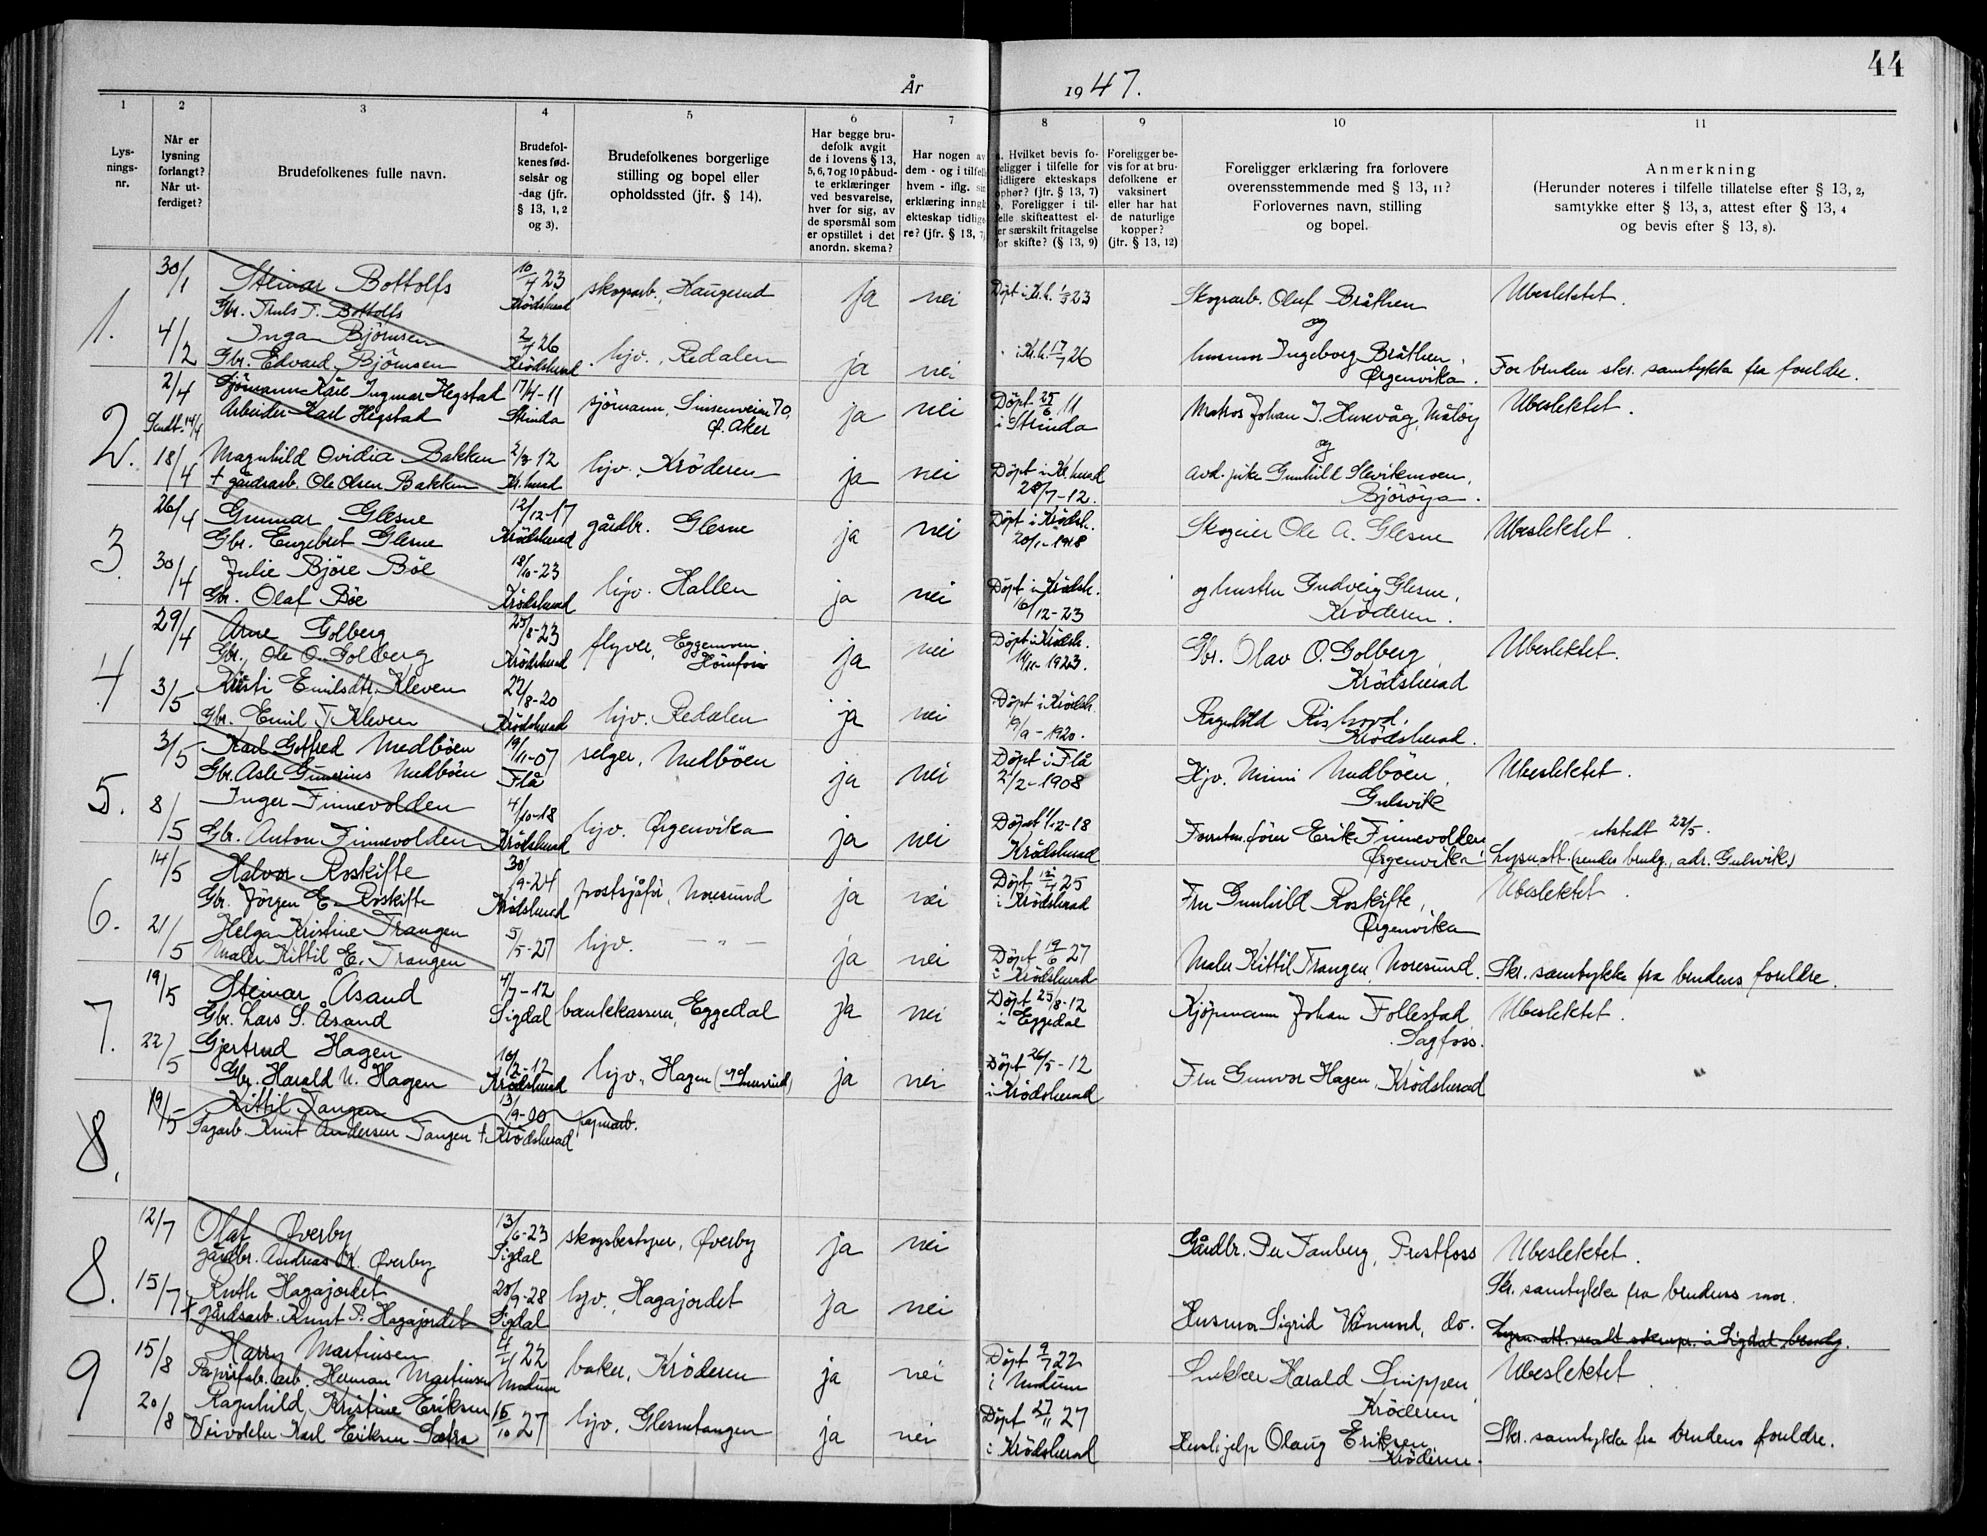 44
År 1947.
1 2 3 4 5 6 7 8 9 10 11
Lys-
nings-
nr.
Når er
lysning
forlangt?
Når ut-
ferdiget?
Brudefolkenes fulle navn.
Brudefol-
kenes fød-
selsår og
-dag (jfr.
§ 13, 1, 2
og 3).
Brudefolkenes borgerlige
stilling og bopel eller
opholdssted (jfr. § 14).
Har begge bru-
defolk avgit
de i lovens § 13,
5, 6, 7 og 10 påbud-
te erklæringer
ved besvarelse,
hver for sig, av
de spørsmål som
er opstillet i det
anordn. skema?
Har nogen av
dem - og i tilfelle
hvem - iflg. sin
erklæring inngå
ekteskap tidlige
re? (jfr. § 13, 7)
a. Hvilket bevis fo-
religger i tilfelle for
tidligere ekteskaps
ophør? (jfr. § 13, 7)
b. Foreligger i til-
felle skifteattest el-
ler særskilt fritagelse
for skifte? (§ 13, 9)
Foreligger be-
vis for at bru-
defolkene er
vaksinert
eller har hat
de naturlige
kopper?
(jfr. § 13, 12)
Foreligger erklæring fra forlovere
overensstemmende med § 13, 11?
Forlovernes navn, stilling
og bopel.
Anmerkning
(Herunder noteres i tilfelle tillatelse efter § 13, 2,
samtykke efter § 13, 3, attest efter § 13, 4
og bevis efter § 13, 8).
1. 30/1 Steinar Bottolfs 10/4 23 skogsarb., Haugerud ja nei Døpt i Kr.h. 1/7 23 Skogsarb. Oluf Bråthen Ubeslektet.
Gbr. Truls T. Bottolfs Krødsherad og
4/2 Inga Bjørnsen 2/4 26 hjv. Redalen ja nei " i Kr.h. 17/7 26 husmor Ingeborg Bråthen,
Gbr. Edvard Bjørnsen Krødsherad Ørgenvika. For bruden skr. samtykke fra foreldre.
2. 2/4 Sjømann Kåre Ingmar Hegstad 17/4-11 sjømann, Sinsenveien 70, ja nei Døpt 25/6 11 Matros Johan J. Husevåg, Måløy Ubeslektet.
Sendt 14/4 Arbeider Karl Hegstad Strinda Ø. Aker i Strinda og
18/4 Magnhild Ovidia Bakken 5/3 12 hjv. Krøderen ja nei Døpt i Kr.herad avd. pike Gunhild Slevikmoen,
+ gårdsarb. Ole Olsen Bakken Kr.herad 28/7-12. Bjørøya.
3. 26/4 Gunnar Glesne 12/12-17 gårdbr. Glesne ja nei Døpt i Krødsh. Skogeier Ole A. Glesne Ubeslektet.
Gbr. Engebret Glesne Krødsherad 20/1-1918
30/4 Julie Bjøre Bøe 18/10-23 hjv. Hallen ja nei Døpt i Krødsh. og hustru Gudveig Glesne,
Gbr. Olaf Bøe Krødsherad 16/12-23 Krøderen.
4. 29/4 Arne Golberg 25/8-23 flyver, Eggemoen, ja nei Døpt i Krødsh. Gbr. Olav O. Golberg, Ubeslektet.
Gbr. Ole O. Golberg Krødsherad Hønefoss 11/11-1923. Krødsherad
3/5 Kirsti Emilsdtr. Kleven 22/8-20 hjv. Redalen ja nei Døpt i Krødsh. Ragnhild Rishovd,
Gbr. Emil T. Kleven Krødsherad 19/9-1920. Krødsherad.
5. 3/5 Karl Gotfred Medbøen 19/11-07 selger, Medbøen ja nei Døpt i Flå Hjv. Mimi Medbøen, Ubeslektet.
Gbr. Asle Gunerius Medbøen Flå 2/2-1908 Gulsvik
8/5 Inger Finnevolden 4/10-18 hjv. Ørgenvika ja nei Døpt 1/12-18 Forretn.fører Erik Finnevolden, utstedt 22/5.
Gbr. Anton Finnevolden Krødsherad Krødsherad Ørgenvika. Lysn.att. (sendes brudg., adr. Gulsvik.)
6. 14/5 Halvor Roskifte 30/9-24 postsjåfør, Noresund ja nei Døpt 12/4 25 Fru Gunhild Roskifte, Ubeslektet.
Gbr. Jørgen E. Roskifte Krødsherad i Krødsherad Ørgenvika
21/5 Helga Kristine Trangen 5/5-27 hjv. — " — ja nei Døpt 19/6 27
Maler Kittil E. Trangen i Krødsherad Maler Kittil Trangen, Noresund. Skr. samtykke fra brudens foreldre.
7. 19/5 Steinar Åsand 4/7-12 bankkasserer, Eggedal ja nei Døpt 25/8-12 Kjøpmann Johan Follestad, Ubeslektet.
Gbr. Lars S. Åsand Sigdal i Eggedal Sagfoss.
22/5 Gjertrud Hagen 10/2-12 hjv., Hagen ja nei Døpt 26/5-12 Fru Gunvor Hagen, Krødsherad
Gbr. Harald N. Hagen Krødsherad i Krødsherad
8. 19/5 Kittil Tangen 13/9-00 papirarb.
Sagarb. Knut Andersen Tangen + Krødsherad
8. 12/7 Olaf Øverby 13/6-23 skogbestyrer, Øverby ja nei Gårdbr. Per Tanberg, Prestfoss Ubeslektet.
gårdbr. Andreas Kr. Øverby Sigdal
15/7 Ruth Hagajordet 28/9-28 hjv., Hagajordet ja nei Skr. samtykke fra brudens mor.
+ gårdsarb. Knut P. Hagajordet Sigdal Husmor Sigrid Vånund, do.
9 15/8 Harry Martinsen 4/4 22 baker, Krøderen ja nei Døpt 9/7 22 Snekker Harald Snippen, Ubeslektet.
Papirfab.arb. Herman Martinsen Modum i Modum Krøderen
20/8 Ragnhild Kristine Eriksen 15/10 27 hjv. Glesnetangen ja nei Døpt 27/11 27 Hushjelp Olaug Eriksen, Skr. samtykke fra brudens foreldre.
Veivokter Karl Eriksen Sætra i Krødsherad Krøderen.